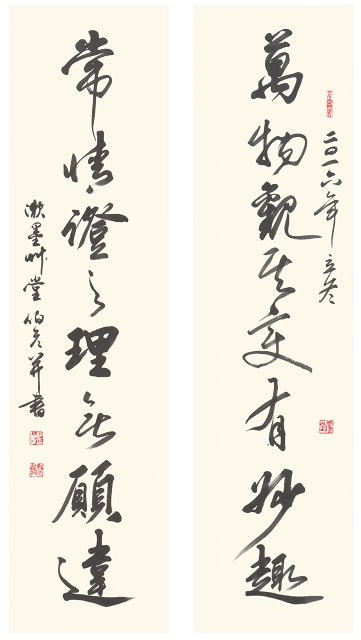 二〇一六年立冬
萬物觀其变有妙趣
常情證之理無願違
漱墨艸堂伯並書